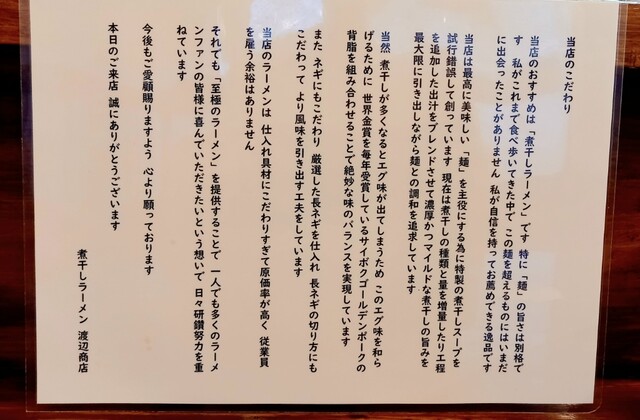 当店のこだわり
当店のおすすめは「煮干しラーメン」です 特に「麺」の旨さは別格で
す 私がこれまで食べ歩いてきた中で この麺を超えるものにはいまだ
に出会ったことがありません 私が自信を持ってお薦めできる逸品です
当店は最高に美味しい「麺」を主役にする為に特製の煮干しスープを
試行錯誤して創っています 現在は煮干しの種類と量を増量したり工程
を追加した出汁をブレンドさせて濃厚かつマイルドな煮干しの旨みを
最大限に引き出しながら麺との調和を追求しています
当然 煮干しが多くなるとエグ味が出てしまうため このエグ味を和ら
げるために 世界金賞を毎年受賞しているサイボクゴールデンポークの
背脂を組み合わせることで絶妙な味のバランスを実現しています
また ネギにもこだわり 厳選した長ネギを仕入れ 長ネギの切り方にも
こだわって より風味を引き出す工夫をしています
当店のラーメンは 仕入れ具材にこだわりすぎて原価率が高く 従業員
を雇う余裕はありません
それでも「至極のラーメン」を提供することで 一人でも多くのラーメ
ンファンの皆様に喜んでいただきたいという想いで 日々研鑽努力を重
ねています
今後もご愛顧賜りますよう 心より願っております
本日のご来店 誠にありがとうございます
煮干しラーメン 渡辺商店